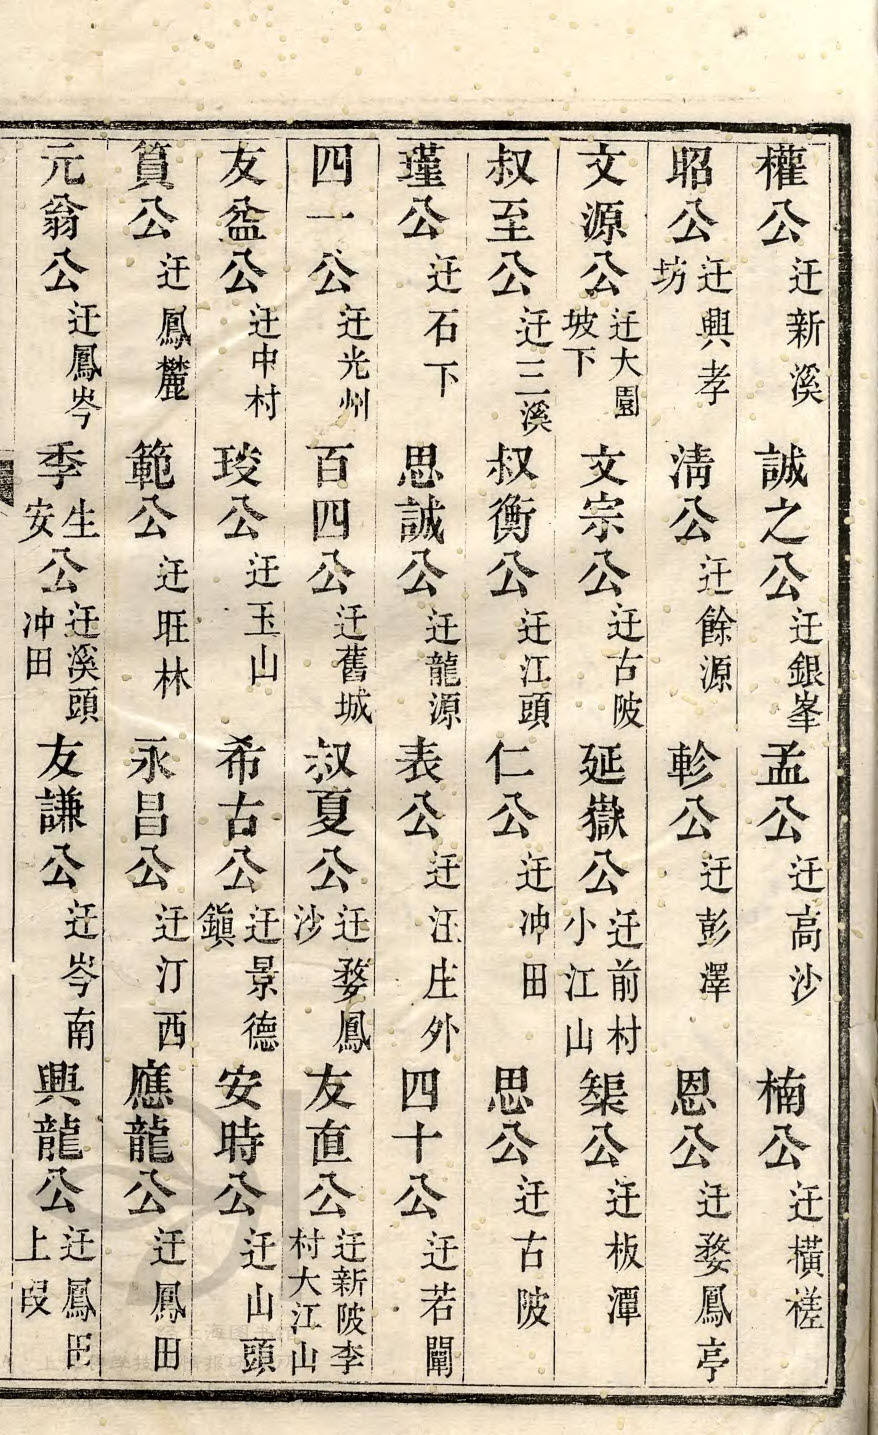 權公迁新溪 誠之公迁銀峯 孟公迁高沙 楠公迁橫槎
昭公迁興孝坊 淸公迁餘源 軫公迁彭澤 恩公迁婺鳳亭
文源公迁大園坡下 文宗公迁古陂 延嶽公迁前村小江山 榘公迁板潭
叔至公迁三溪 叔衡公迁江頭 仁公迁冲田 思公迁古陂
瑾公迁石下 思誠公迁龍源 表公迁汪庄外 四十公迁若闌
四一公迁光州 百四公迁舊城 叔夏公迁婺鳳沙 友直公迁新陂李村大江山
友盆公迁中村 琰公迁玉山 希古公迁景德鎭 安時公迁山頭
篔公迁鳳麓 範公迁旺林 永昌公迁汀西 應龍公迁鳳田
元翁公迁鳳岑 季生安公迁溪頭冲田 友謙公迁岑南 興龍公迁鳳田上段